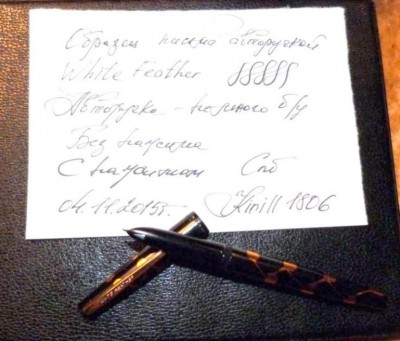 Образец письма авторучкой
White Feather
Авторучка - немного б/у
Без нажима
С нажимом Спб
04.11.2015г. Kirill 1806